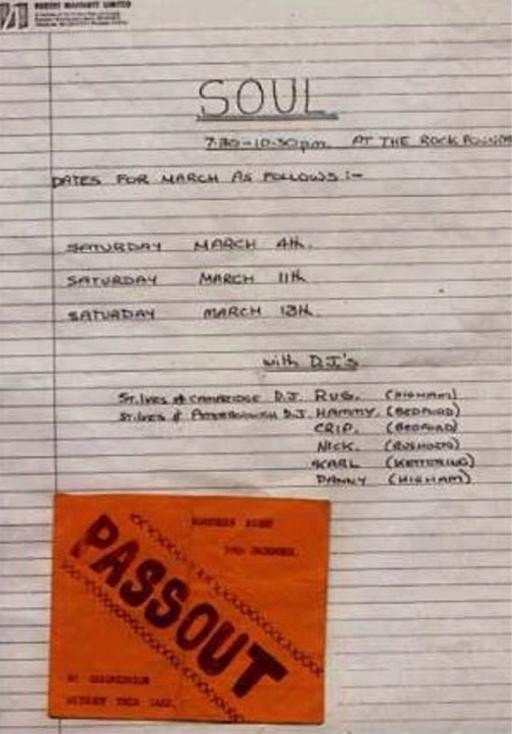 LIMITED
SOUL
7.30-10.30pm. AT THE ROCK
DATES FOR MARCH AS FOLLOWS :-
SATURDAY MARCH 4th.
SATURDAY MARCH 11th
SATURDAY MARCH 18th.
with D.J.'s
St.Ives & CAMBRIDGE D.J. RUG. (HIGHAM)
St.Ives & PETERBOROUGH D.J. HAMMY. (BEDFORD)
CRIP. (BEDFORD)
NICK. (RUSHDEN)
KARL (KETTERING)
DANNY (HIGHAM)
NORTHERN NIGHT
DECEMBER.
PASSOUT
NO READMISSION
WITHOUT THIS CARD.